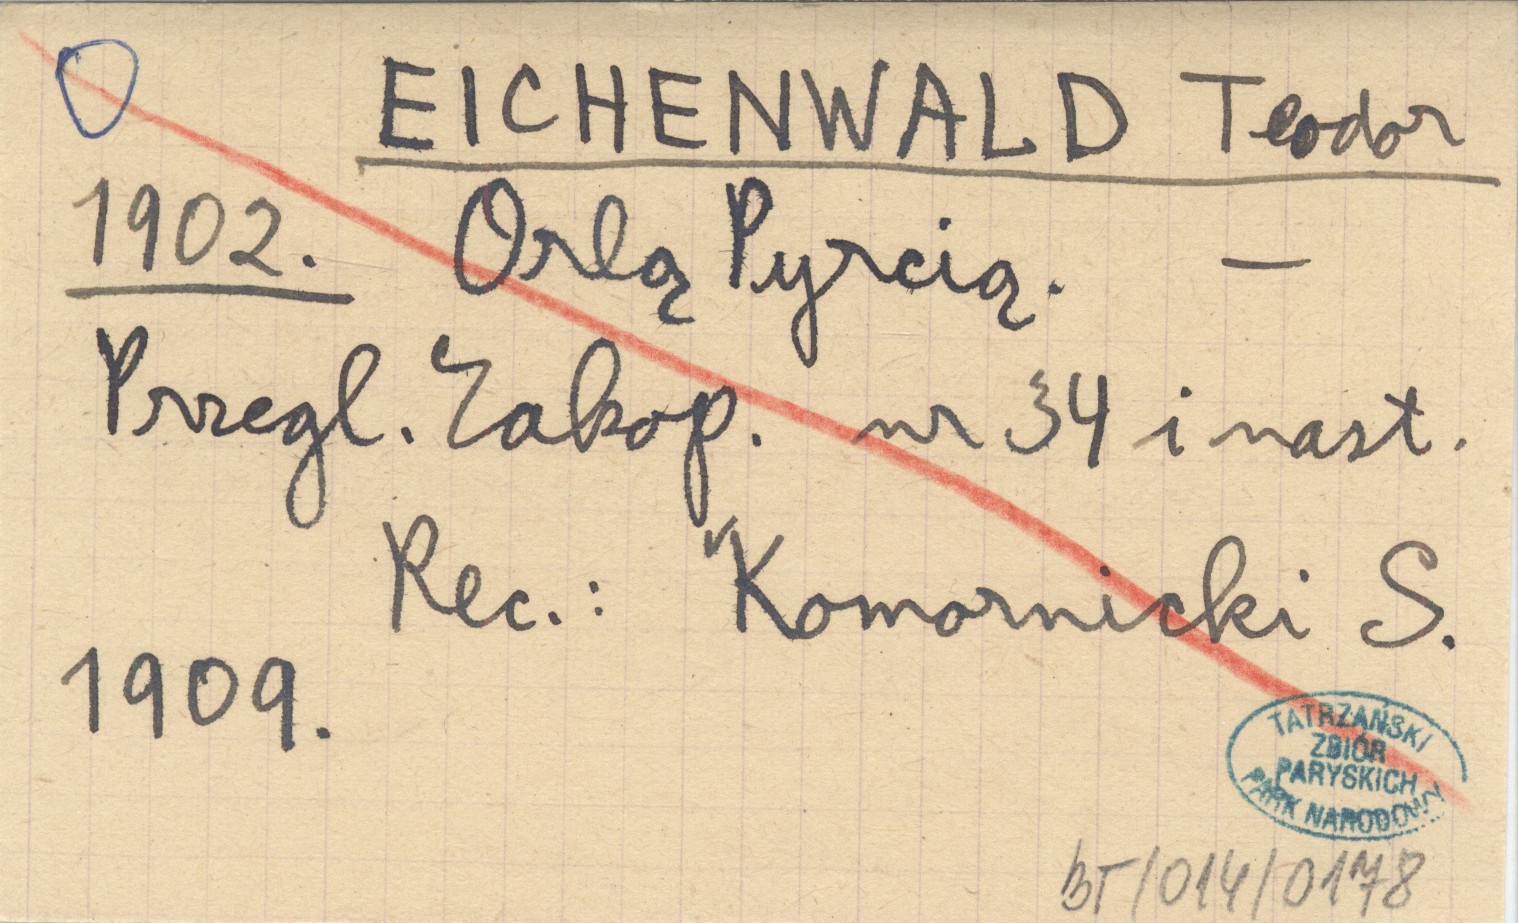 EICHENWALD Teodor
1902. Orlą Pyrcią. —
Przegl. Zakop. nr 34 i nast.
Rec.: "Komornicki S.
1909.
TATRZAŃSKI
ZBIÓR
PARYSKICH
PARK NARODOWY
BT/014/0178